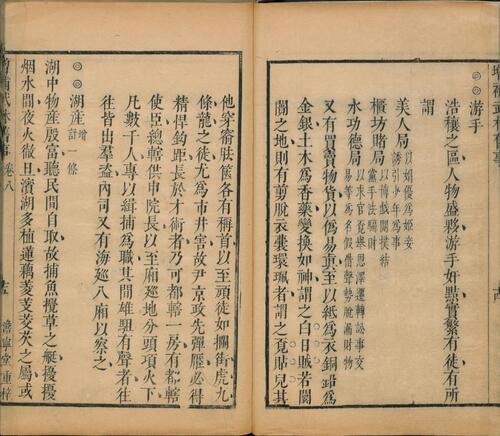 ◎◎游手
浩穰之區人物盛夥游手奸黠實繁有徒有所
謂
美人局以娼優為姬妾誘引少年為事
櫃坊賭局以博戲關撲結黨手法騙財
水功德局以求官覓舉恩澤遷轉訟事交易等為名假借聲勢脫漏財物
又有買賣物貨以偽易真至以紙為衣銅鉛為
金銀土木為香藥變換如神謂之白日賊若闤
闠之地則有剪脫衣囊環珮者謂之覓貼兒其
他穿窬胠篋各有稱首以至頑徒如攔街虎九
條龍之徒尤為市井害故尹京政先彈壓必得
精悍鉤距長於才術者乃可都轄一房有都轄
使臣總轄供申院長以至廂廵地分頭項火下
凡數千人專以緝捕為職其間雄駔有聲者往
往皆出羣盜內司又有海廵八廂以察之
◎◎湖產增計一條
湖中物產殷富聽民間自取故捕魚攬草之艇擾擾
烟水間夜火徹旦濱湖多植蓮藕菱芰茭芡之屬或
卷八
澹寧堂重梓